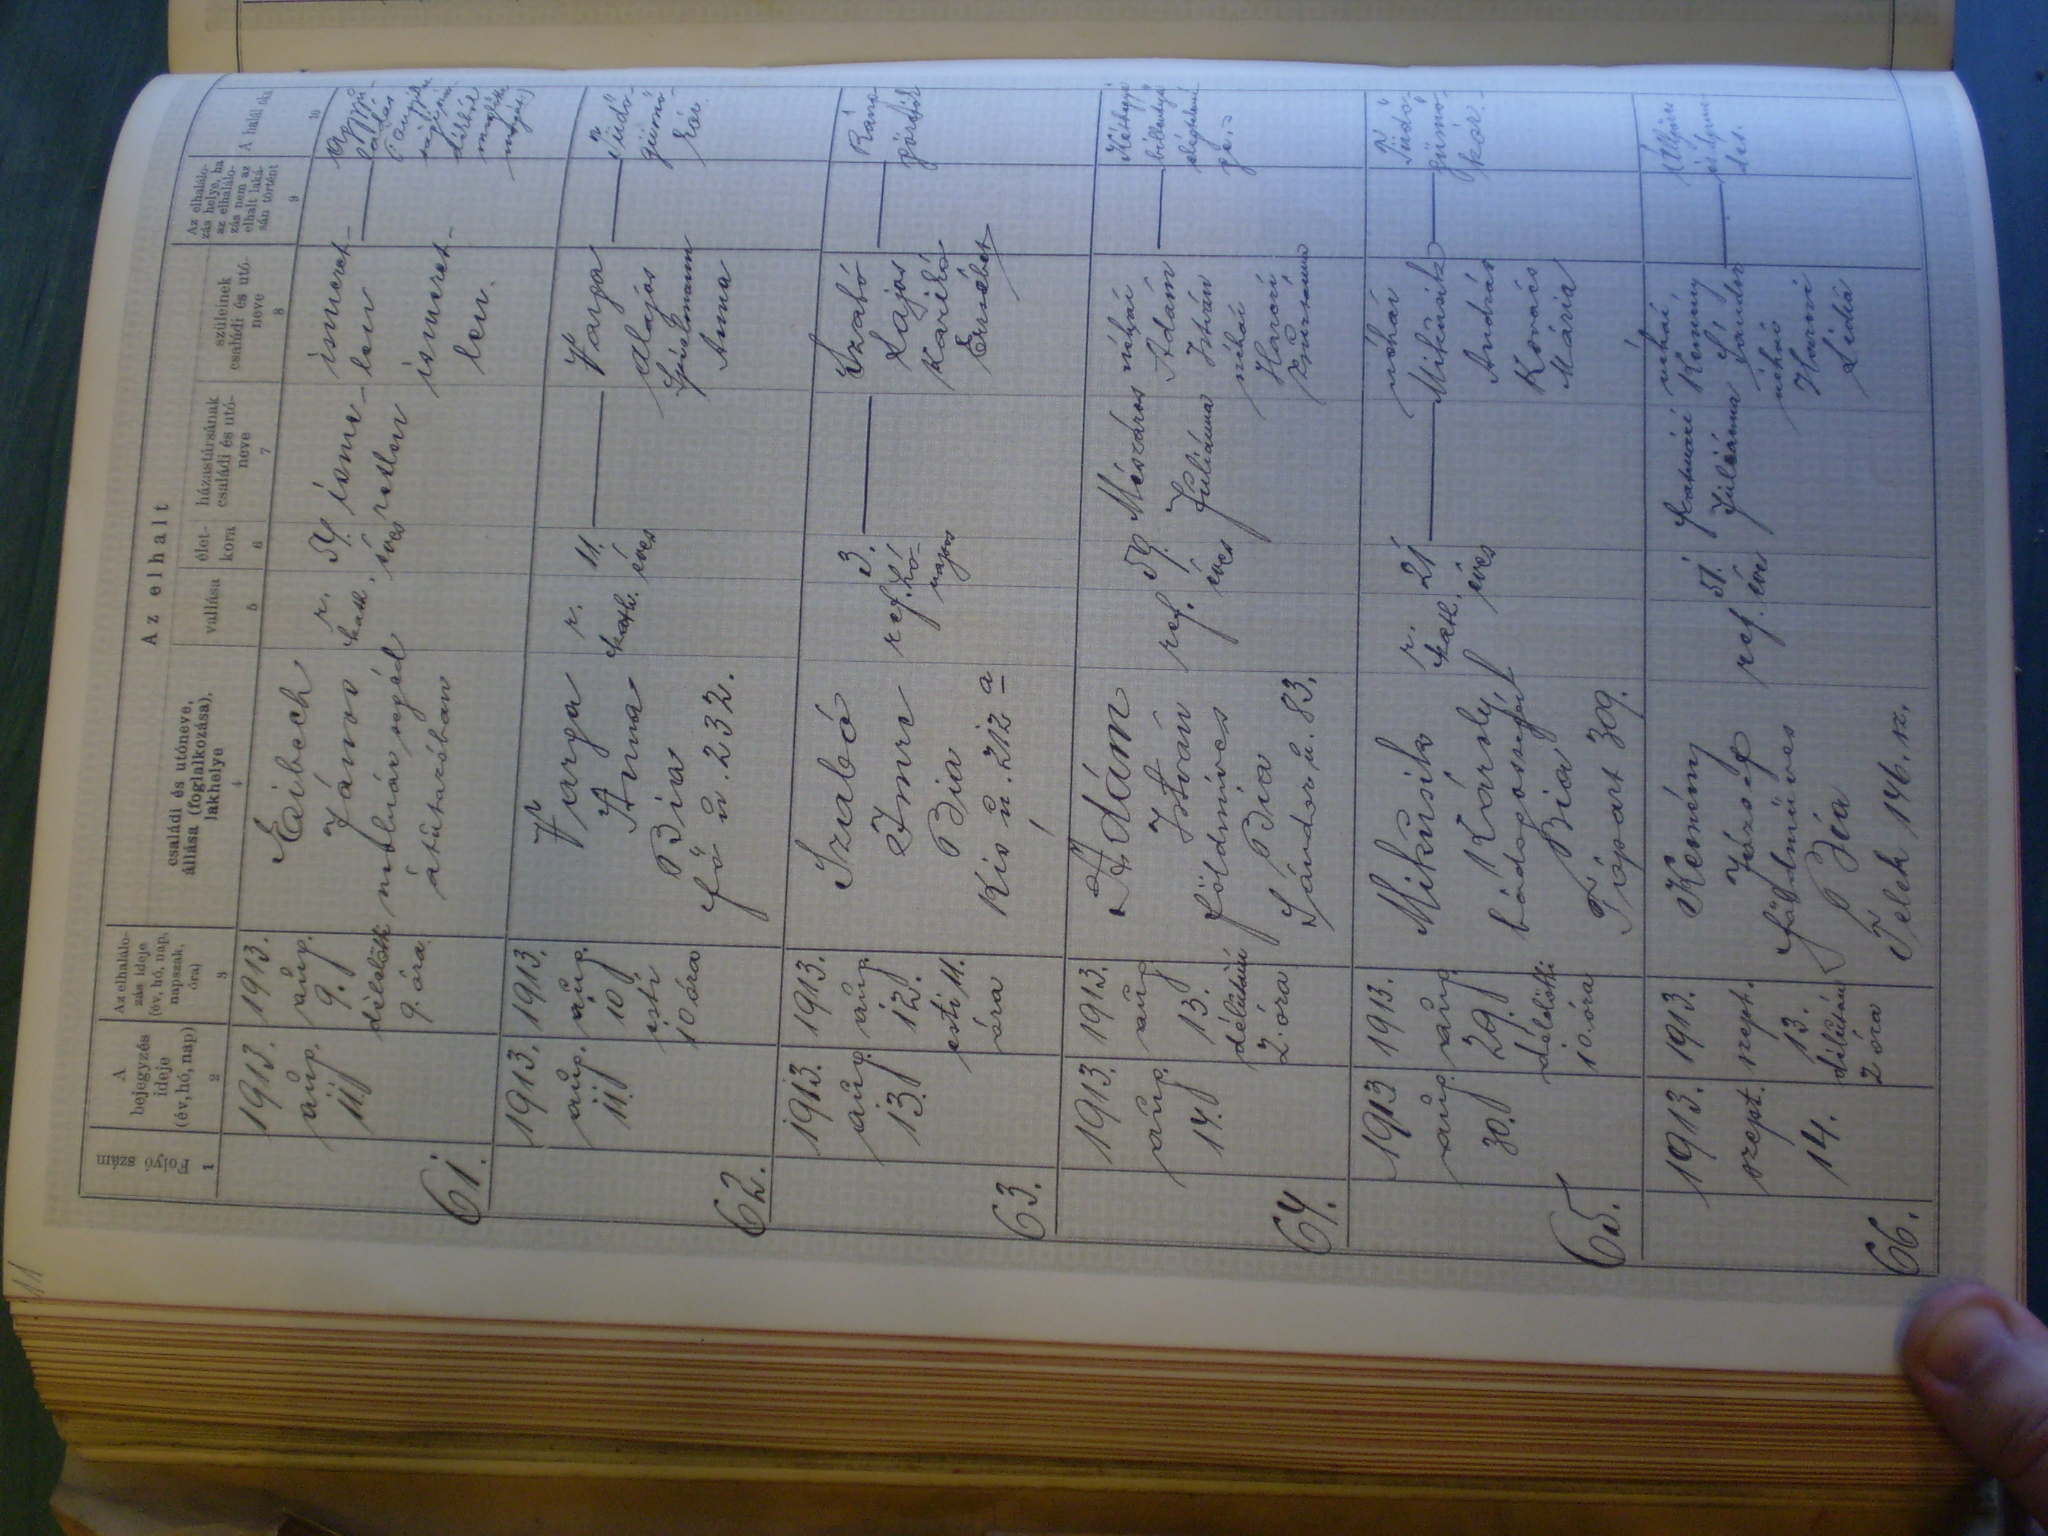 Az elhalt
Folyó szám
A bejegyzés ideje (év, hó, nap)
Az elhalálozás ideje (év, hó, nap, napszak, óra)
családi és utóneve, állása (foglalkozása), lakhelye
vallása
életkora
házastársának családi és utóneve
szüleinek családi és utóneve
Az elhalálozás helye, ha az elhalálozás nem az elhalt lakásán történt
A halál oka
1
2
3
4
5
6
7
8
9
10
61.
1913.
aug.
11.
1913.
aug.
9.
délelőtt
9. óra
Eibech
János
molnár segéd
átutazóban
r.
kath.
54
éves
isme-
retlen
ismeret-
len
ismeret-
len.
62.
1913.
aug.
11.
1913.
aug.
10
esti
10 óra
Varga
Anna
Bia
Fő u. 232.
r.
kath.
11.
éves
Varga
Alajos
Spielmann
Anna
Tüdő-
gümő-
kór.
63.
1913.
aug.
13.
1913.
aug.
12.
esti 11.
óra
Szabó
Imre
Bia
Kis u. 212 a
ref.
3.
hó-
napos
Szabó
Lajos
Erzsébet
Ránc-
görcsök
64.
1913.
aug.
14.
1913.
aug.
13.
délután
2. óra
Ádám
István
földmíves
Bia
Sándor u. 83.
ref.
59.
éves
Mészáros
Juliánna
néhai
Ádám
István
néhai
65.
1913
aug.
30.
1913.
aug.
29.
délelőtt
10. óra
Mikusik
Károly
bádogossegéd
Bia
Tópart 309.
r.
kath.
21
éves
néhai
Mikusik
András
Kovács
Mária
Tüdő-
gümő-
kór.
66.
1913.
szept.
14.
1913.
szept.
13.
délután
2 óra
Kemény
József
földmíves
Bia
Telek 146. sz.
ref.
51.
éves
Juliánna
néhai
Kemény
Sándor
néhai
Lidia